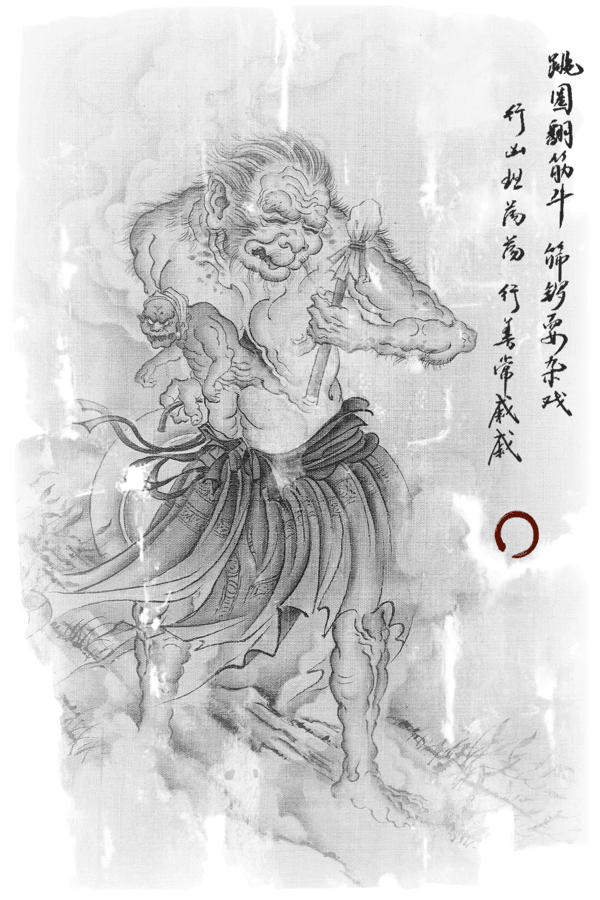 跳圈翻筋斗 筛锣耍杂戏
行凶坦荡荡 行善常戚戚